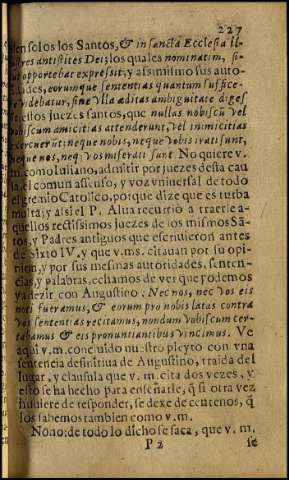 227
len solos los Santos, & in sancta Ecclesia il-
lustres antistites Dei; los quales nominatim, si-
ut opportebat expressit; y assimismo sus auto-
idades, eorumque sententias quantum suffice-
re videbatur, sine vlla æditas ambiguitate diges
sit; estos juezes santos, que nullas nobiscũ vel
vobiscum amicitias attenderunt, vel inimicitias
exercuerũt: neque nobis, neque vobis irati sunt,
neque nos, neq; vos miserati sunt. No quiere v.
m. como Iuliano, admitir por juezes desta cau
sa, el comun ascenso, y voz vniuersal de todo
el gremio Catolico, porque dize que es turba
multa; y assi el P. Alua recurriò a traerle a-
quellos rectissimos juezes de los mismos Sã-
tos, y Padres antiguos que escriuieron antes
de Sixto IV. y que v.ms. citauan por su opi-
nion, y por sus mesmas autoridades, senten-
cias, y palabras, echamos de ver que podemos
ya dezir con Augustino: Nec nos, nec vos eis
noti fueramus, & eorum pro nobis latas contra
vos sententias recitamus, nondum vobiscum cer-
tabamus & eis pronuntiantibus vincimus. Ve
aqui v.m. concluido nuestro pleyto con vna
sentencia definitiua de Augustino, traida del
lugar, y clausula que v.m. cita dos vezes, y
esto se ha hecho para enseñarle, q̃ si otra vez
huuiere de responder, se dexe de centenos, q̃
los sabemos tambien como v.m.
Nono: de todo lo dicho se saca, que v.m.
P 2 se